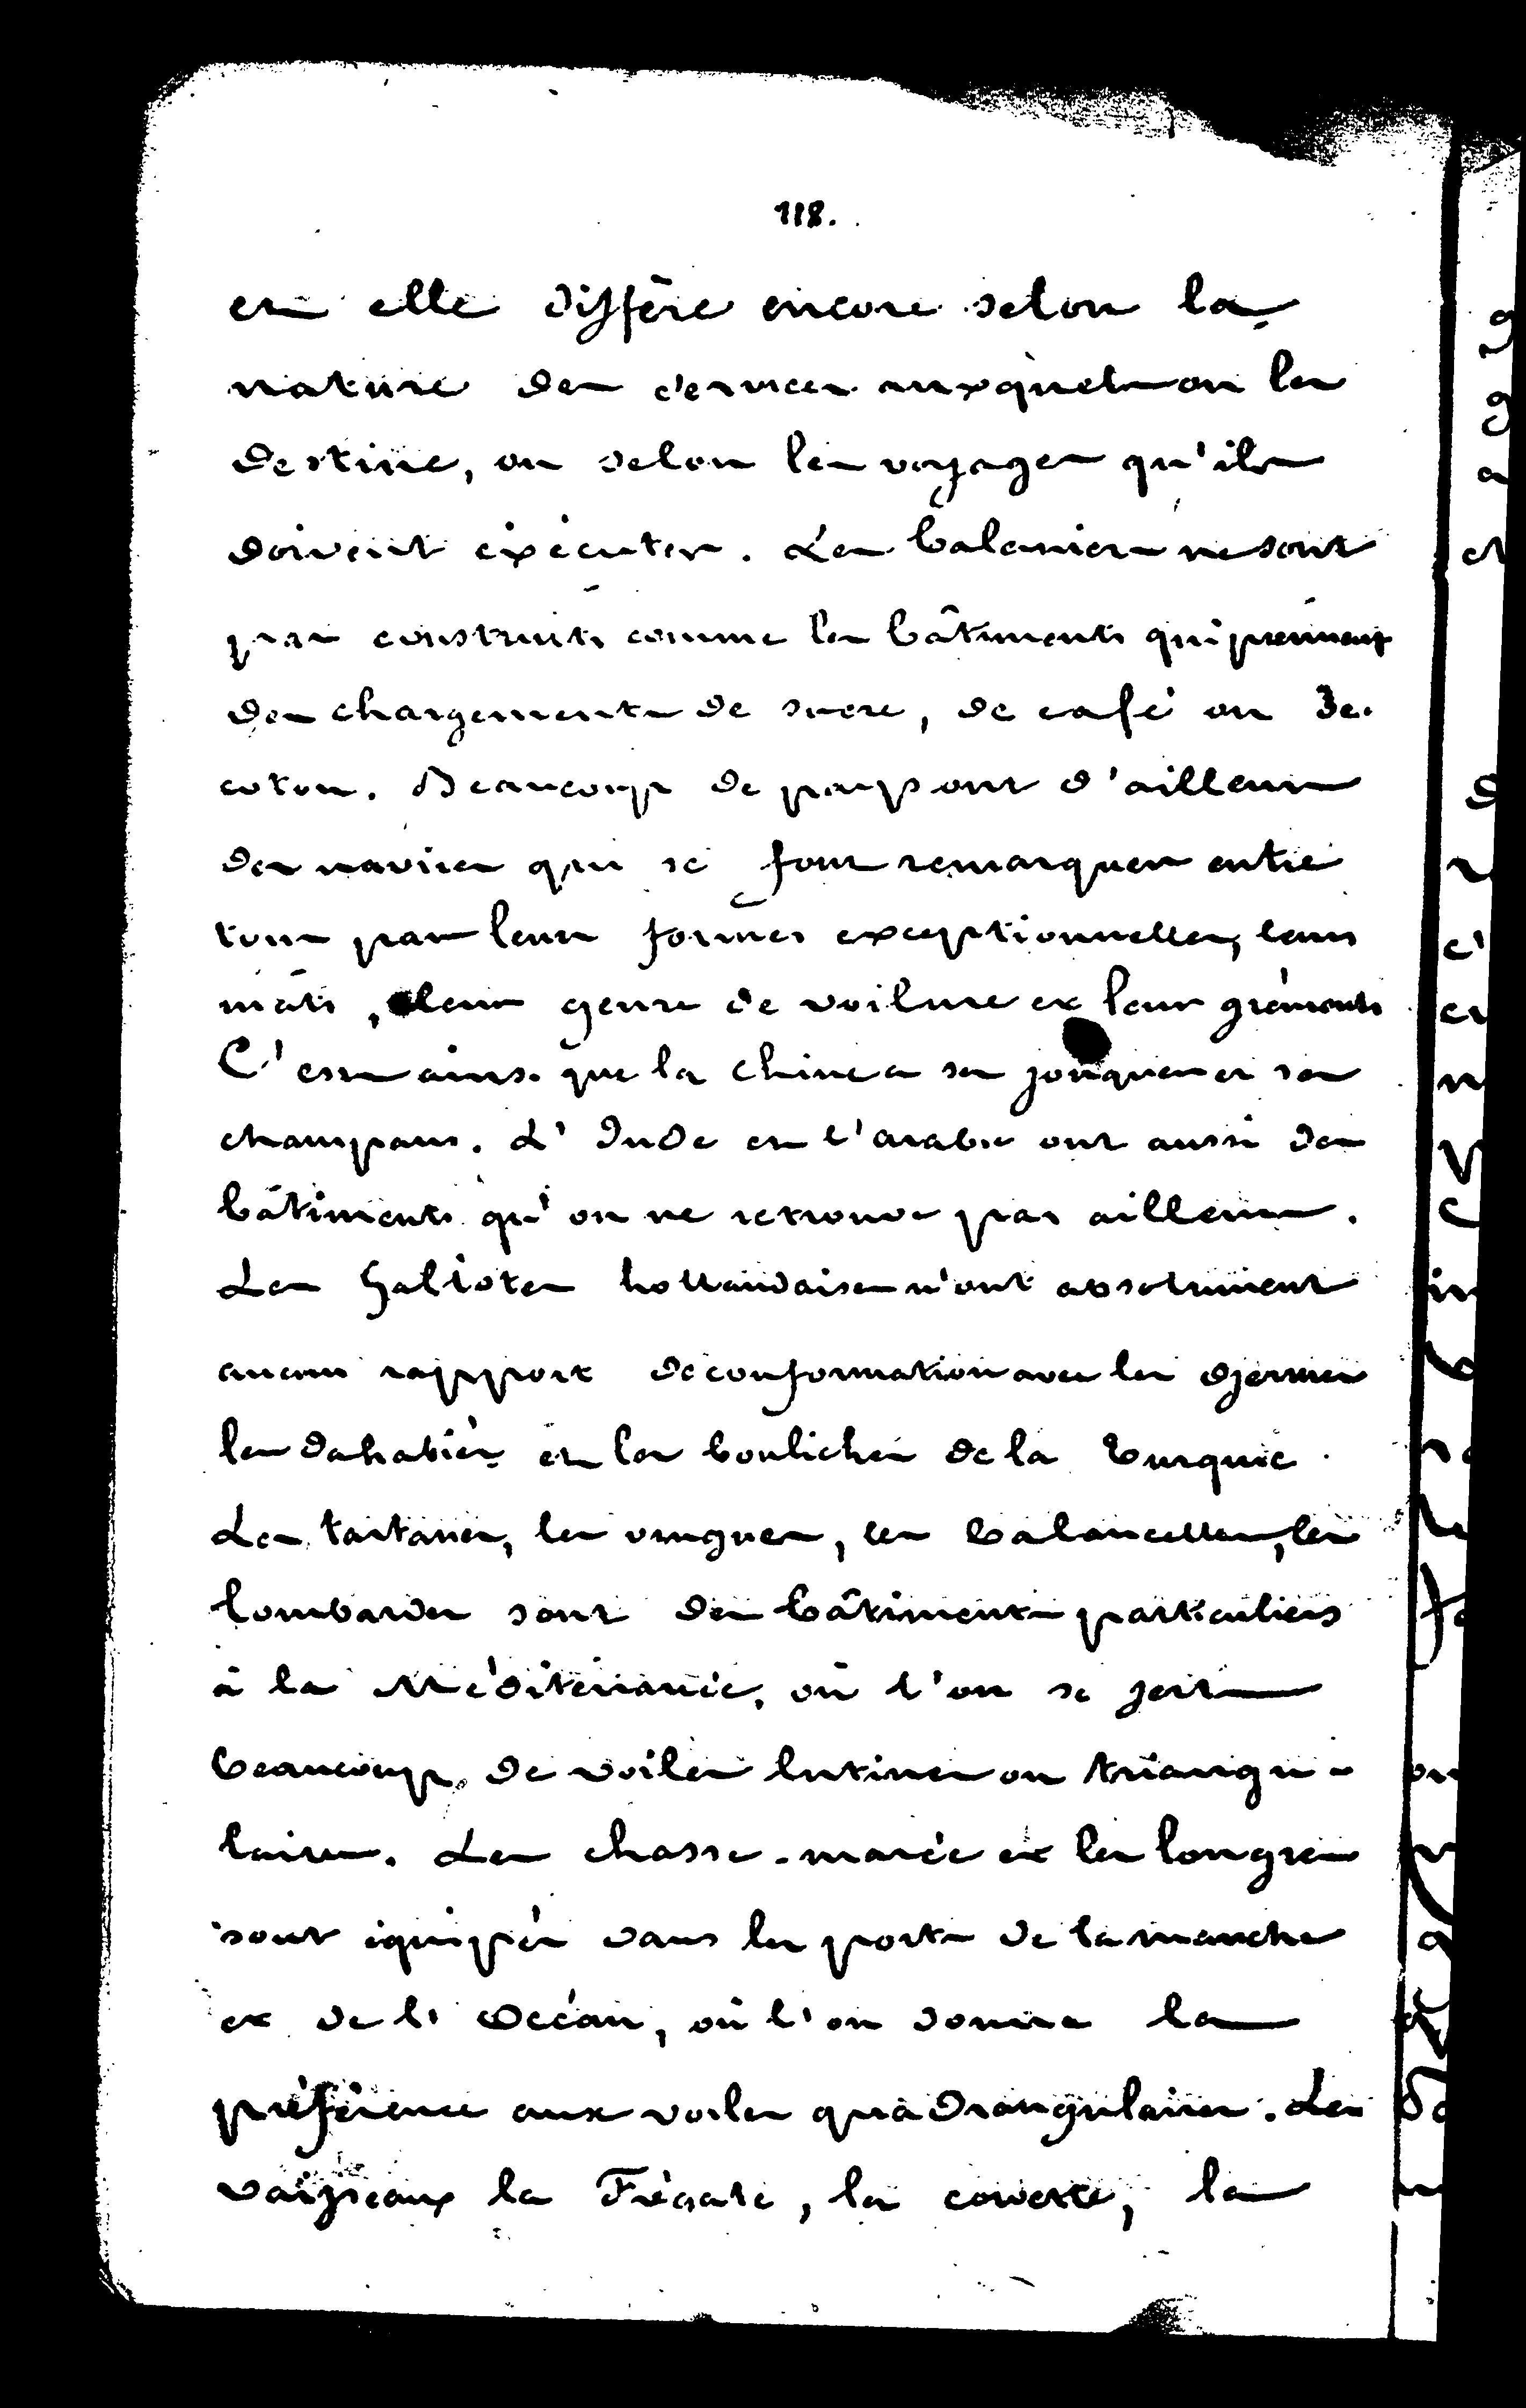 118.
et elle diffère encore selon la
nature des services auxquels on les
destine, ou selon les voyages qu'ils
doivent exécuter. Les baleniers ne sont
pas construits comme les bâtiments qui prennent
des chargements de sucre, de café ou de
coton. Beaucoup de pays ont d'ailleurs
des navires qui se font remarquer entre
tous par leurs formes exceptionnelles, leurs
mâts, leur genre de voilure et leur gréments
C'est ainsi que la Chine a ses jonques et ses
champans. L'Inde et l'arabie ont aussi des
bâtiments qu'on ne retrouve pas ailleurs.
Les Galiotes hollandaises n'ont absolument
aucun rapport de conformation avec les djermes
les dahabiès et les bouliches de la Turquie.
Les tartanes, les balancelles, les
lombardes sont des bâtiments particuliers
à la Méditerranée, où l'on se sert
beaucoup de voiles latines ou triangu-
laires. Les chasse-marée et les lougres
sont équipés dans les ports de la manche
et de l'Océan, où l'on donne la
préférence aux voiles quadrangulaires. Les
vaisseaux la Frégate, la corvette, la